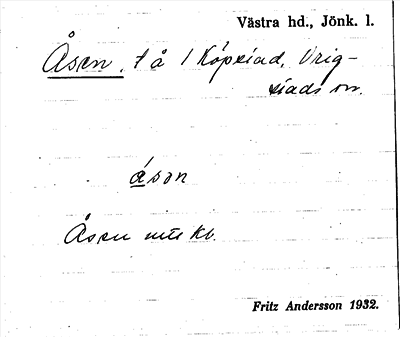 Västra hd., Jönk. l.
Åsen, t å 1 Köpstad, Vrig-
stads sn.
ásɔn
Åsen utt kb.
Fritz Andersson 1932.